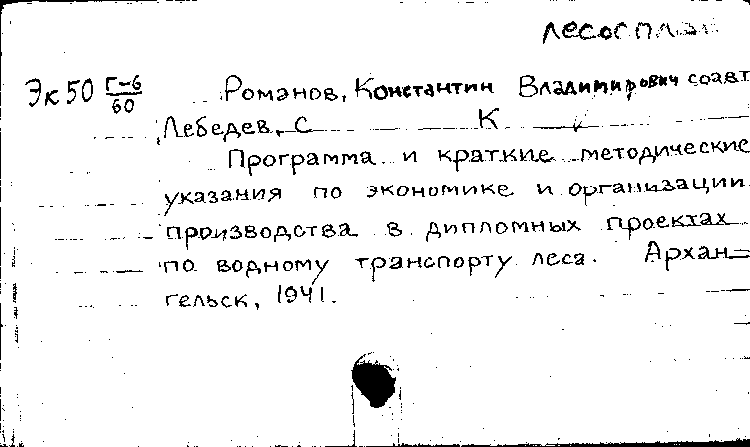 лесосплав
Эк50 Г-6/60 Романов, Константин Владимирович соавт
Лебедев, С К
Программа и краткие методические
указания по экономике и организации
производства в дипломных проектах
по водному транспорту леса. Архан-
гельск, 1941.